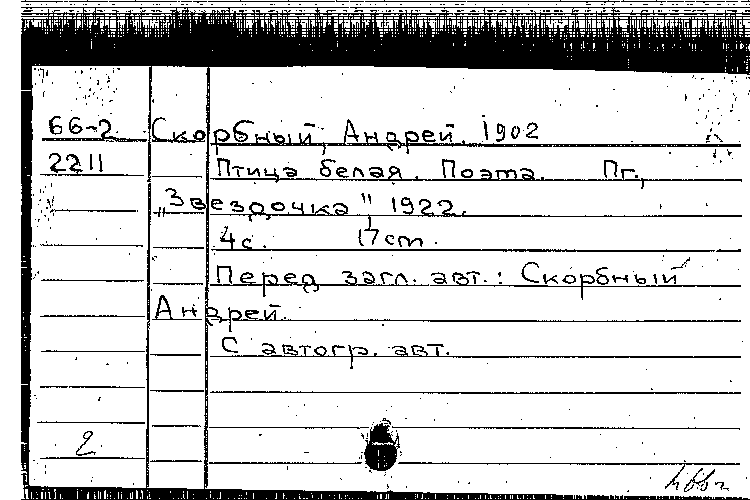 66-2 Скорбный, Андрей. 1902
2211 Птица белая. Поэма. Пг.,
„Звездочка" 1922.
4с. 17cm.
Перед загл. авт.: Скорбный
Андрей.
С автогр. авт.
2